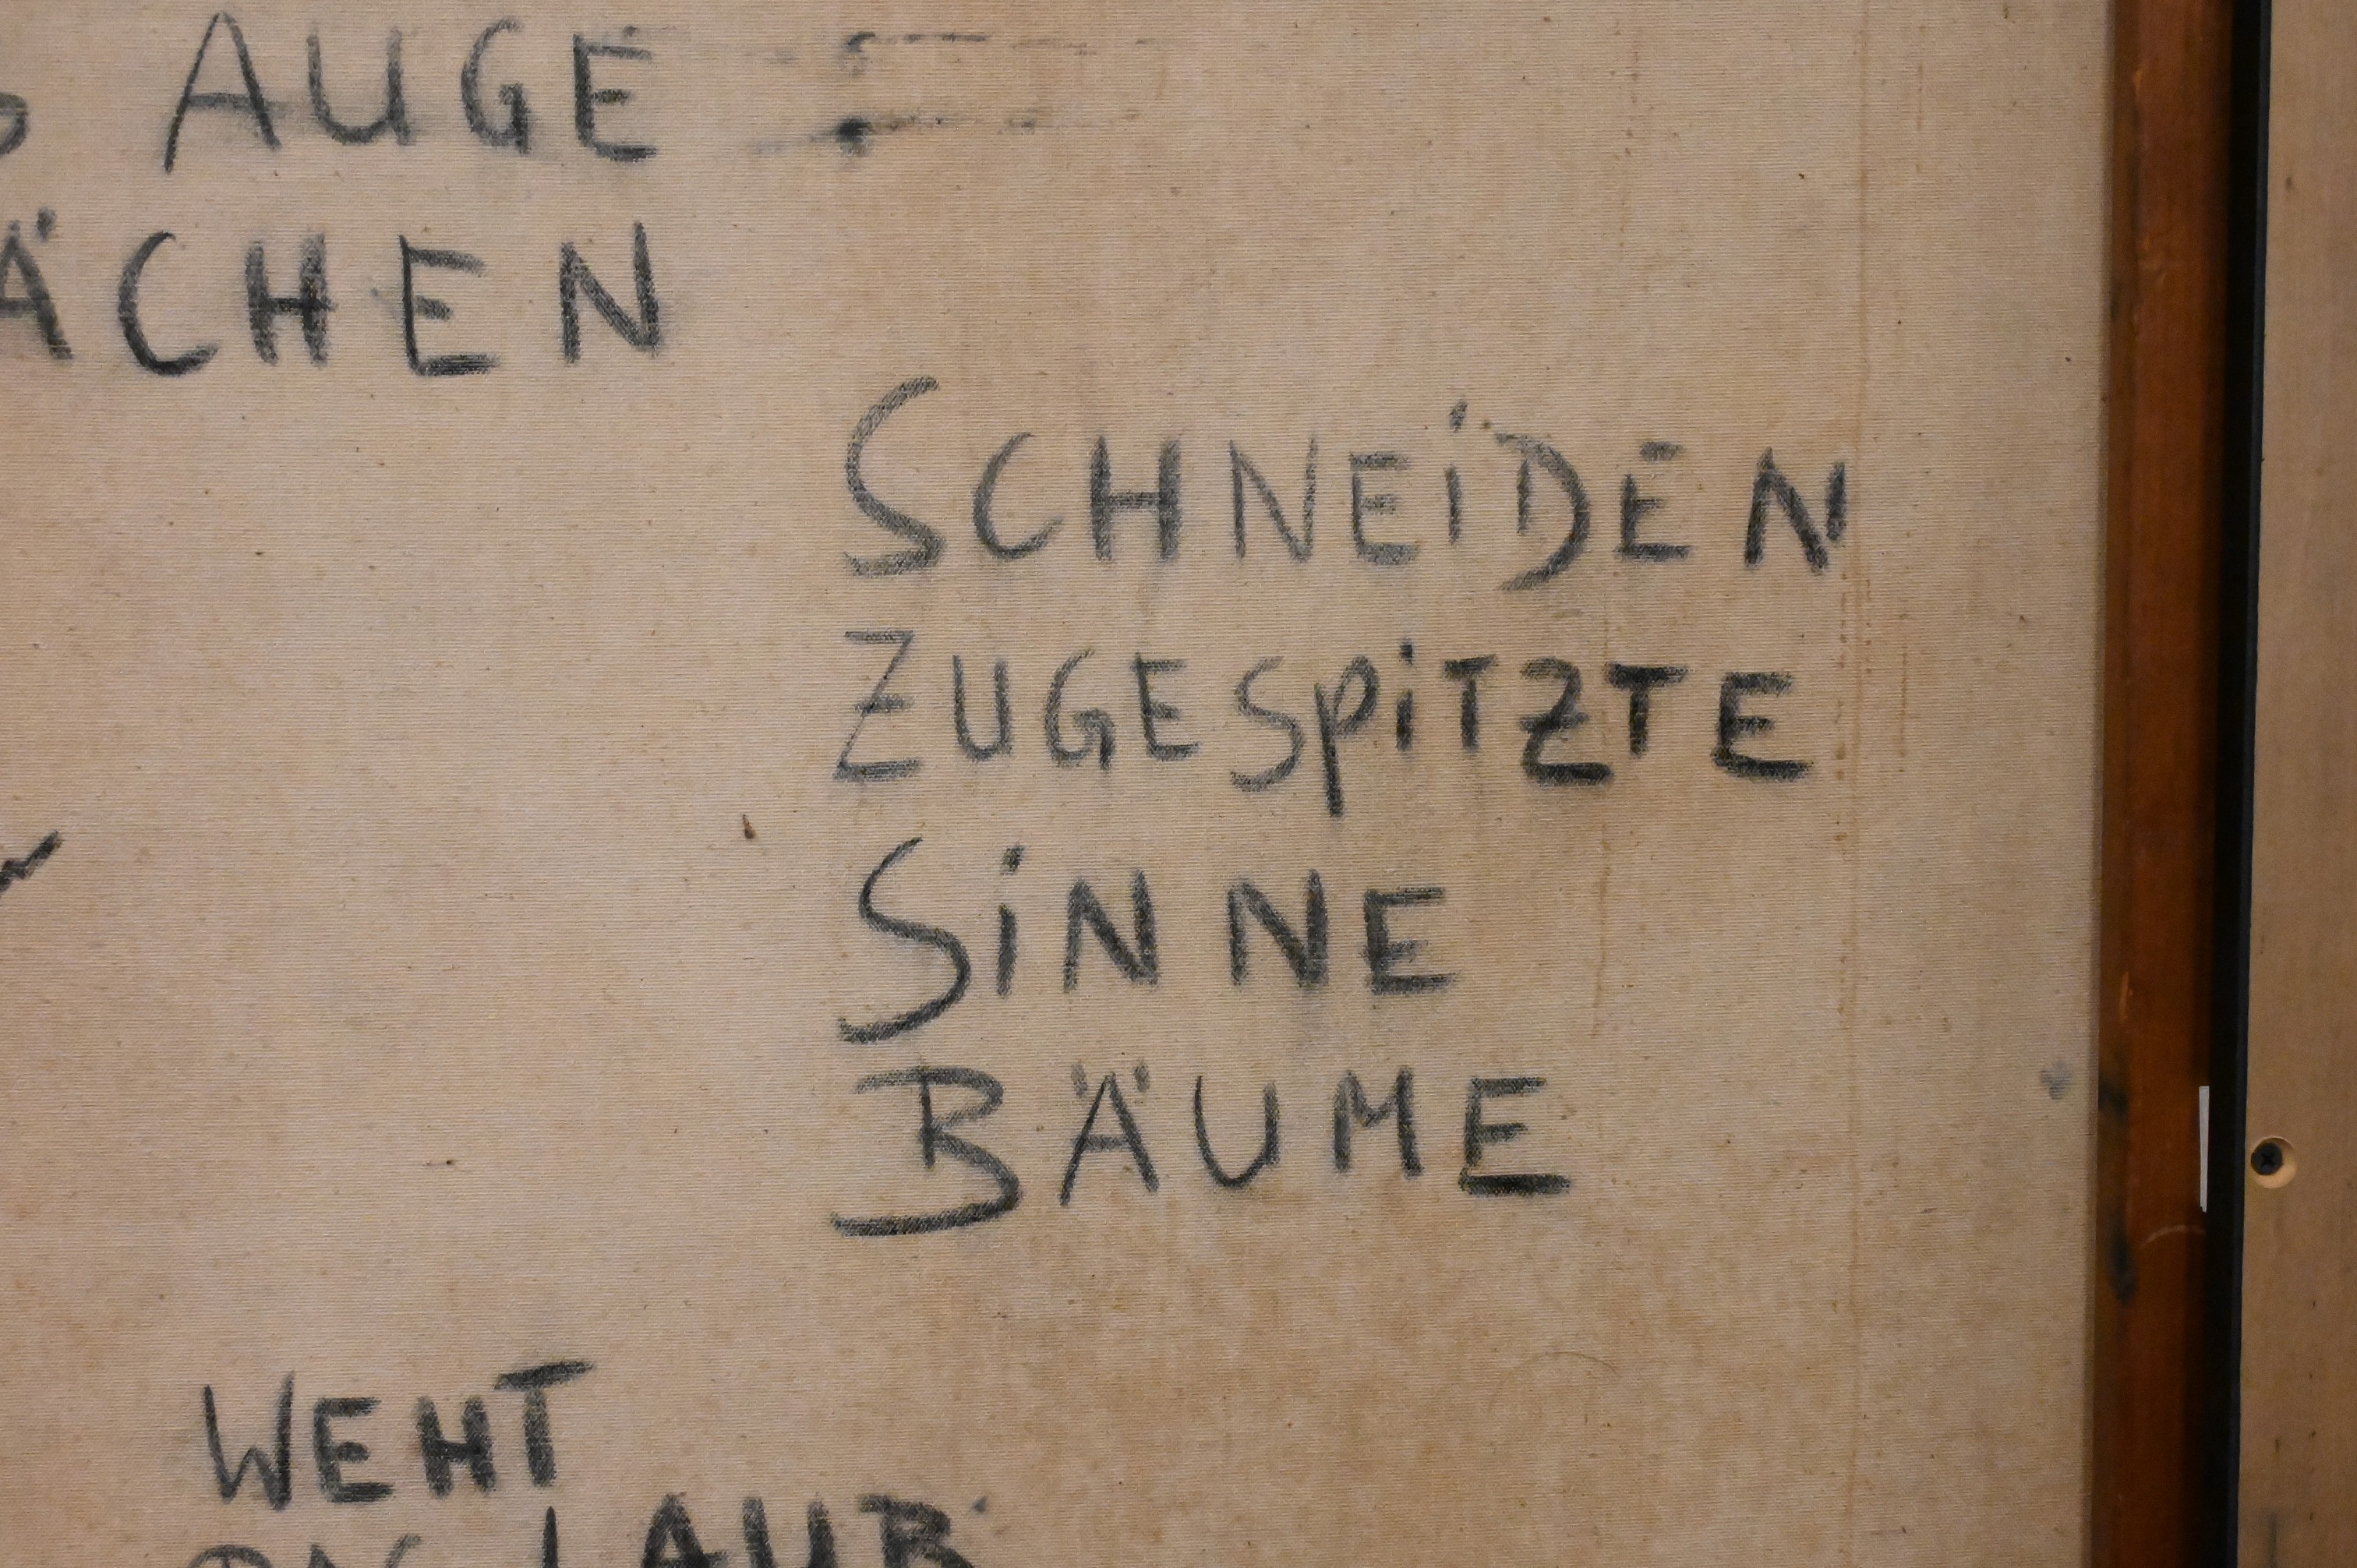 AUGE
ÄCHEN
SCHNEiDEN
ZUGESPiTZTE
SiNNE
BÄUME
WEHT
LAUB